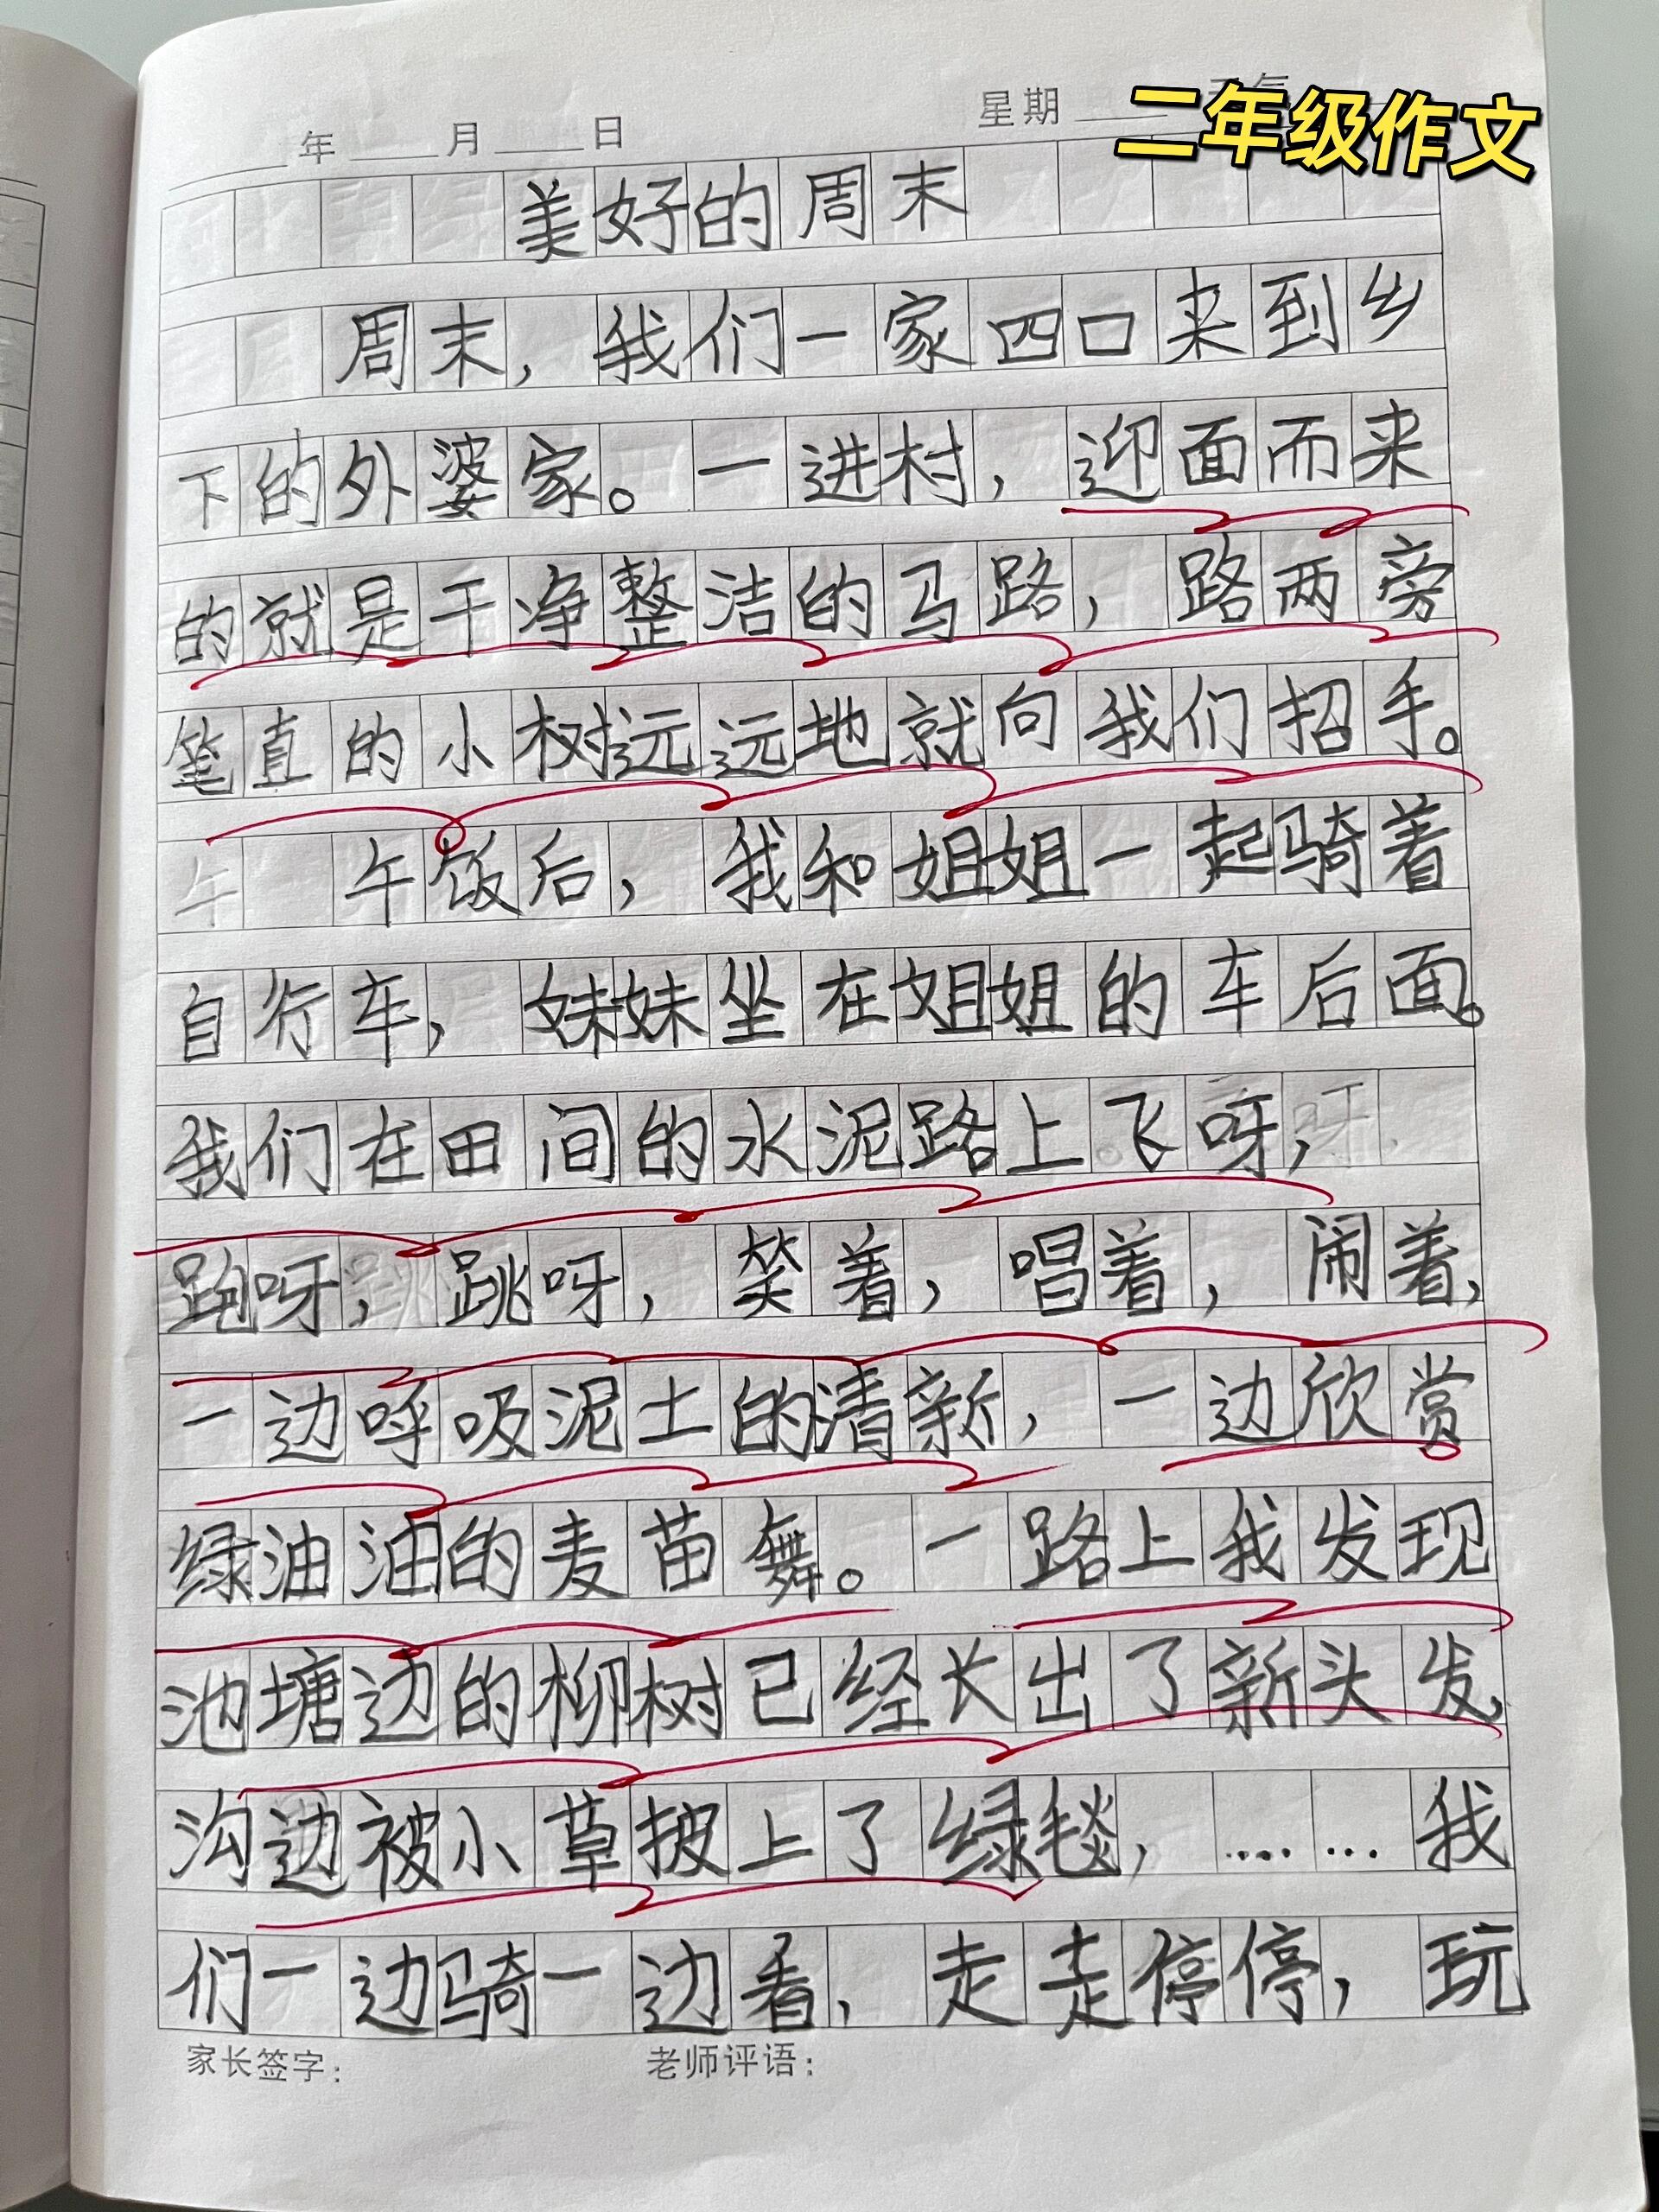 二年级作文
年 月 日 星期
美好的周末
周末，我们一家四口来到乡
下的外婆家。一进村，迎面而来
的就是干净整洁的马路，路两旁
笔直的小树远远地就向我们招手。
午饭后，我和姐姐一起骑着
自行车，妹妹坐在姐姐的车后面。
我们在田间的水泥路上飞呀，
跑呀，跳呀，笑着，唱着，闹着，
一边呼吸泥土的清新，一边欣赏
绿油油的麦苗舞。一路上我发现
池塘边的柳树已经长出了新头发，
沟边被小草披上了绿毯，……我
们一边骑一边看，走走停停，玩
家长签字： 老师评语：